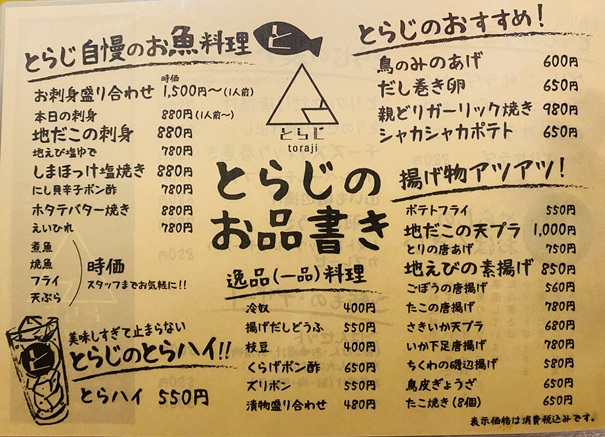 とらじ自慢のお魚料理
と
時価
お刺身盛り合わせ 1,500円〜(1人前)
本日の刺身 880円(1人前〜)
地だこの刺身 880円
地えび塩ゆで 780円
しまほっけ塩焼き 880円
にし貝辛子ポン酢 780円
ホタテバター焼き 880円
えいひれ 780円
煮魚
焼魚
フライ
天ぷら
時価
スタッフまでお気軽に!!
美味しすぎて止まらない
とらじのとらハイ!!
と
とらハイ 550円
とらじ
toraji
とらじの
お品書き
逸品(一品)料理
冷奴 400円
揚げだしどうふ 550円
枝豆 400円
くらげポン酢 650円
ズリポン 550円
漬物盛り合わせ 480円
とらじのおすすめ!
鳥のみのあげ 600円
だし巻き卵 650円
親どりガーリック焼き 980円
シャカシャカポテト 650円
揚げ物アツアツ!
ポテトフライ 550円
地だこの天プラ 1,000円
とりの唐あげ 750円
地えびの素揚げ 850円
ごぼうの唐揚げ 560円
たこの唐揚げ 780円
さきいか天プラ 680円
いか下足唐揚げ 780円
ちくわの磯辺揚げ 580円
鳥皮ぎょうざ 650円
たこ焼き(8個) 650円
表示価格は消費税込みです。